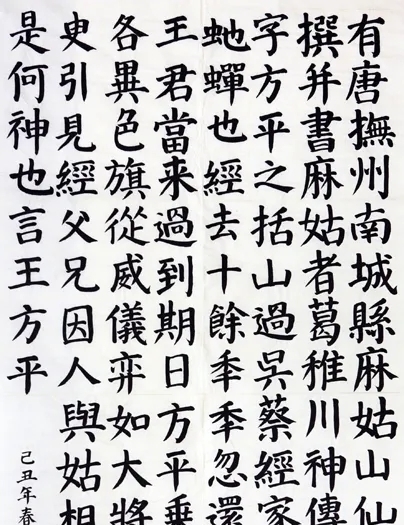 有唐撫州南城縣麻姑山仙
撰并書麻姑者葛稚川神傳
字方平之括山過吳蔡經家
虵蟬也經去十餘秊秊忽還
王君當来過到期日方平乗
各異色旗從威儀弈如大將
史引見經父兄因人與姑相
是何神也言王方平
己丑年春